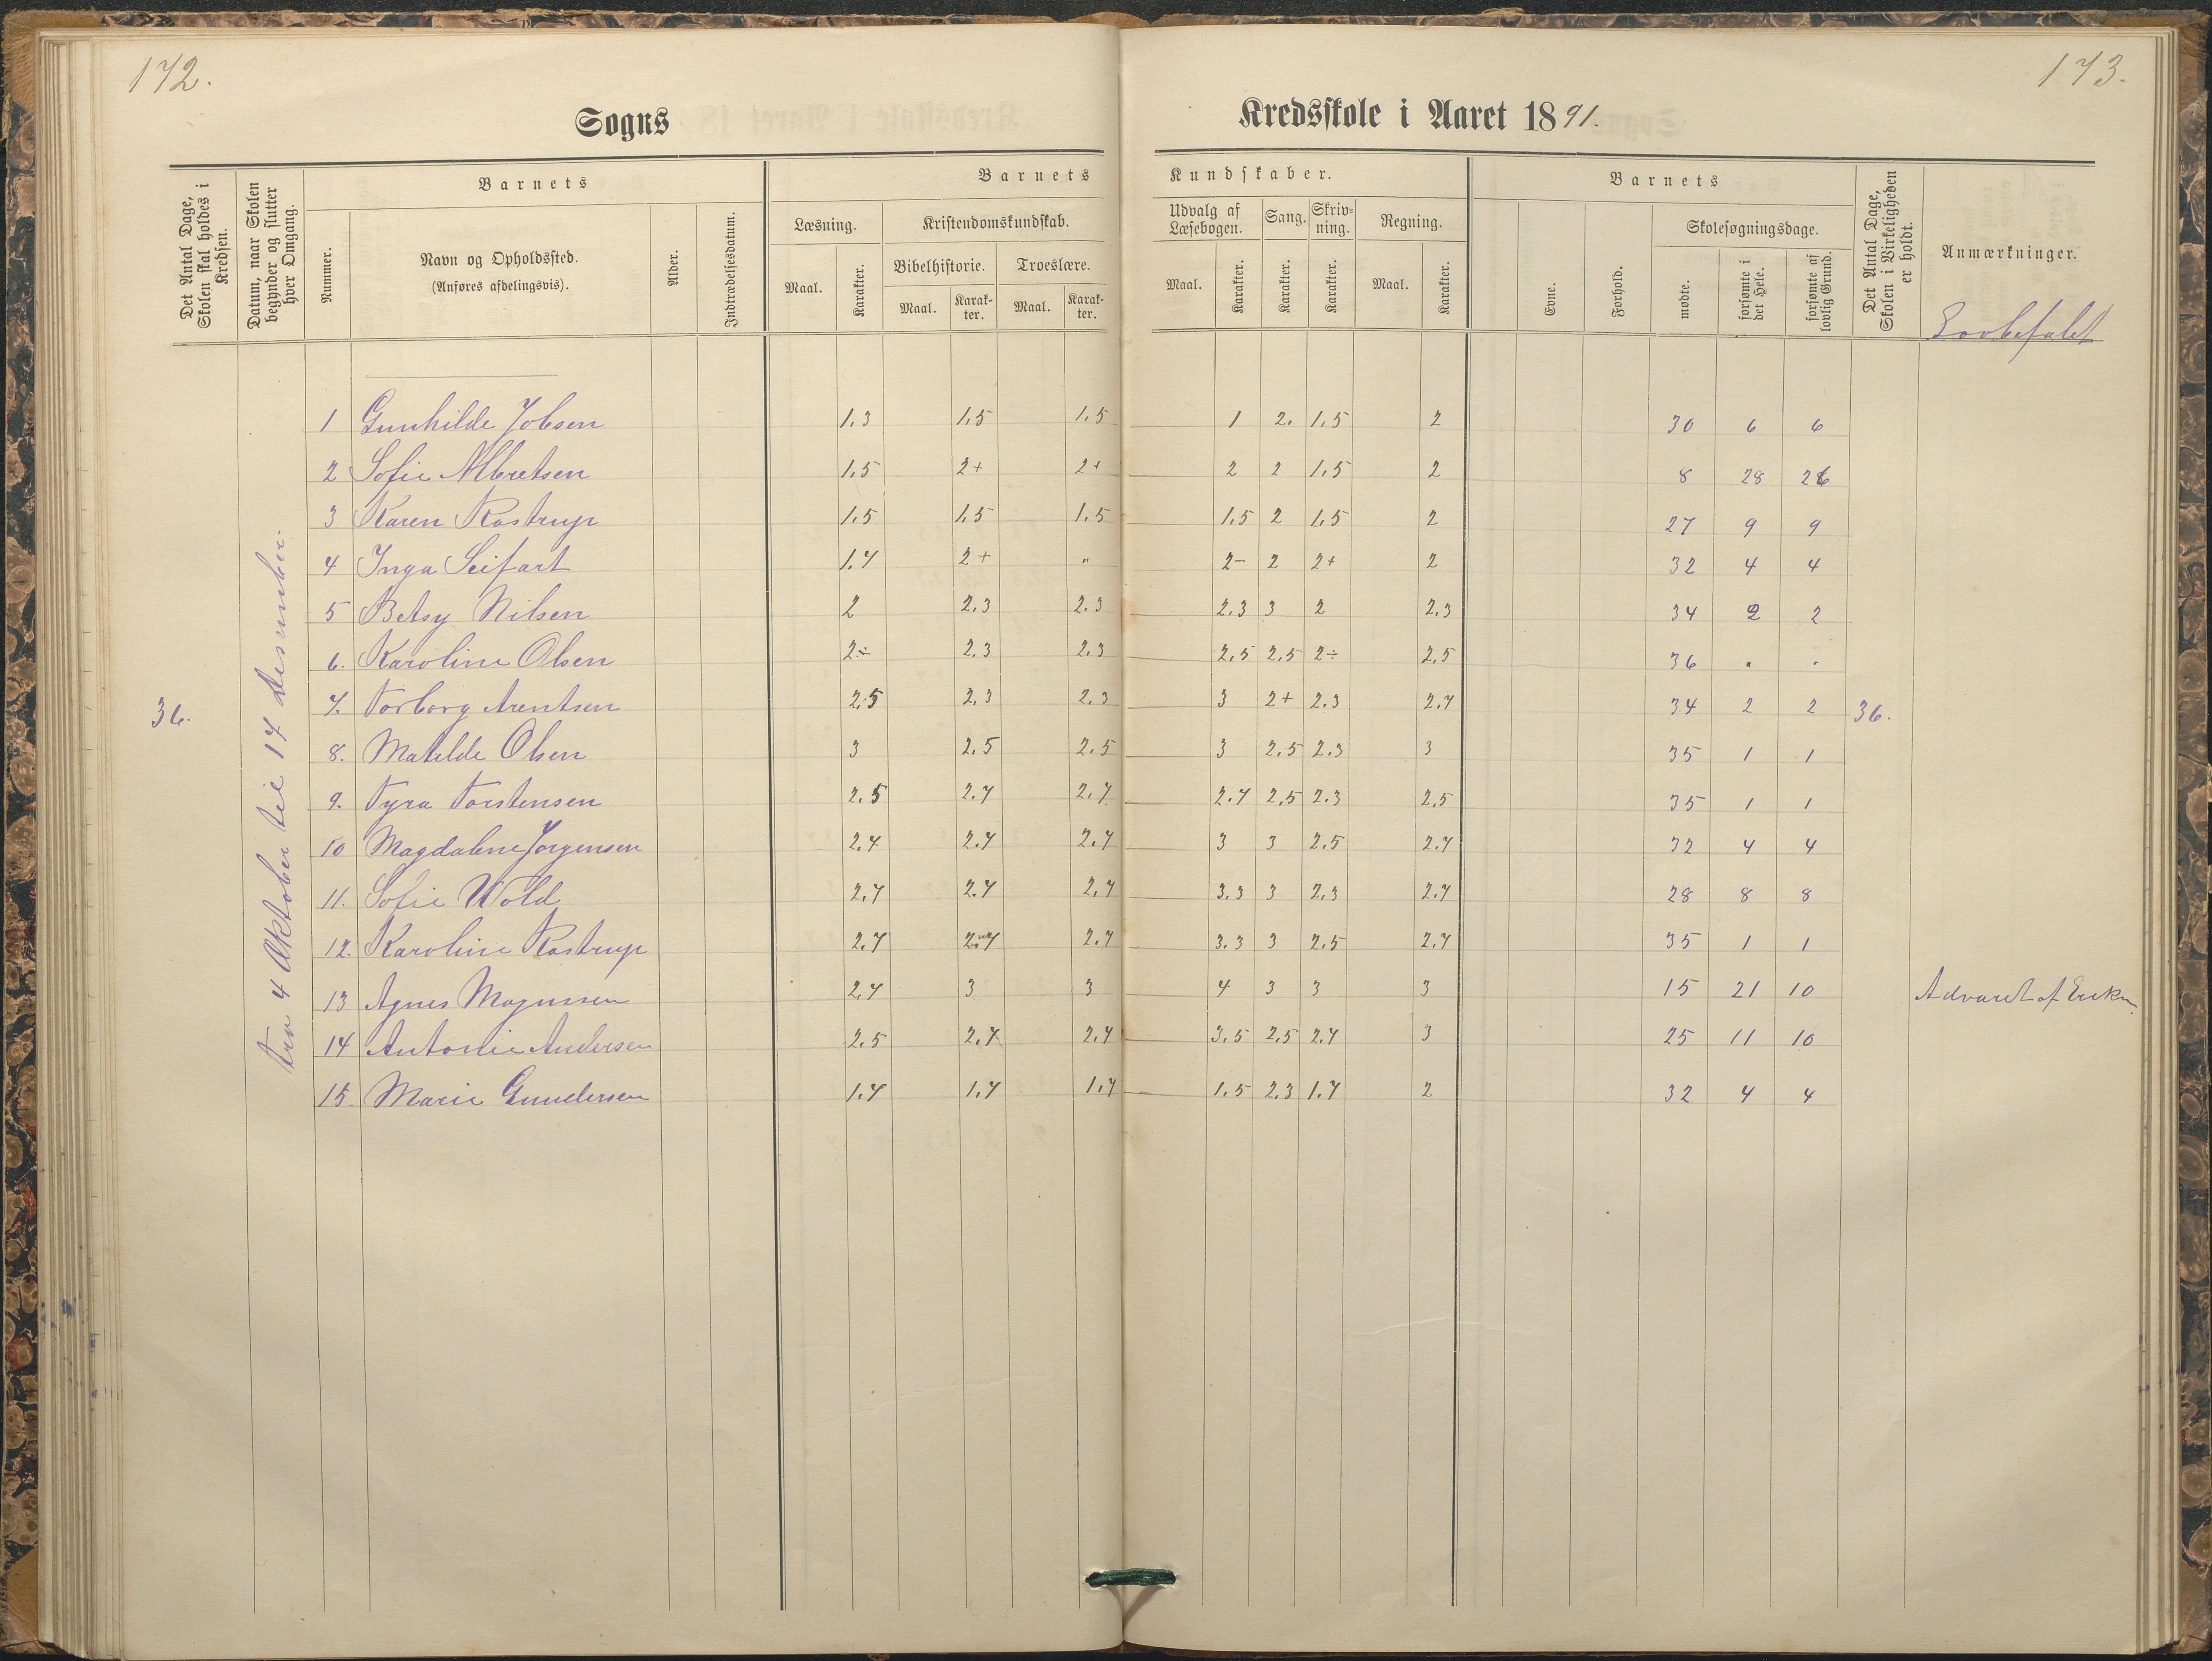 172.
173.
Sogns
Kredsskole i Aaret 1891.
Det Antal Dage, Skolen skal holdes i Kredsen.
Datum, naar Skolen begynder og slutter hver Omgang.
Barnets
Nummer.
Navn og Opholdssted.
(Anføres afdelingsvis).
Alder.
Indtrædelsesdatum.
Barnets
Læsning.
Maal.
Karakter.
Kristendomskundskab.
Bibelhistorie.
Maal.
Karak-
ter.
Troeslære.
Maal.
Karak-
ter.
Kundskaber.
Udvalg af
Læsebogen.
Maal.
Karakter.
Sang.
Karakter.
Skriv-
ning.
Karakter.
Regning.
Maal.
Karakter.
Barnets
Evne.
Forhold.
Skolesøgningsdage.
mødte.
forsømte i det Hele.
forsømte af lovlig Grund.
Det Antal Dage, Skolen i Virkeligheden er holdt.
Anmærkninger.
36.
fra 4 Oktober til 17 Desember.
1 Gunhilde Jobsen 1,3 1,5 1,5 1 2. 1,5 2 30 6 6
2 Sofie Albretsen 1,5 2+ 2+ 2 2 1,5 2 8 28 26
3 Karen Rostrup 1,5 1,5 1,5 1,5 2 1,5 2 27 9 9
4 Inga Seifart 1,7 2+ " 2- 2 2+ 2 32 4 4
5 Betsy Nilsen 2 2,3 2.3 2.3 3 2 2,3 34 2 2
6. Karoline Olsen 2÷ 2.3 2,3 2,5 2,5 2÷ 2,5 36 . .
7. Torborg Arentsen 2,5 2,3 2,3 3 2+ 2,3 2,7 34 2 2 36.
8. Matilde Olsen 3 2,5 2,5 3 2,5 2,3 3 35 1 1
9. Tyra Torstensen 2.5 2.7 2,7 2.7 2,5 2.3 2,5 35 1 1
10 Magdalene Jørgensen 2,7 2.7 2.7 3 3 2,5 2,7 32 4 4
11. Sofie Wold 2,7 2.7 2,7 3.3 3 2,3 2.7 28 8 8
12. Karoline Rostrup 2,7 2,7 2,7 3.3 3 2,5 2,7 35 1 1
13 Agnes Magnussen 2,7 3 3 4 3 3 3 15 21 10 Advaret af
14 Antonie Andersen 2.5 2,7 2,7 3.5 2,5 2,7 3 25 11 10
15 Marie Gundersen 1.7 1,7 1,7 1,5 2,3 1,7 2 32 4 4